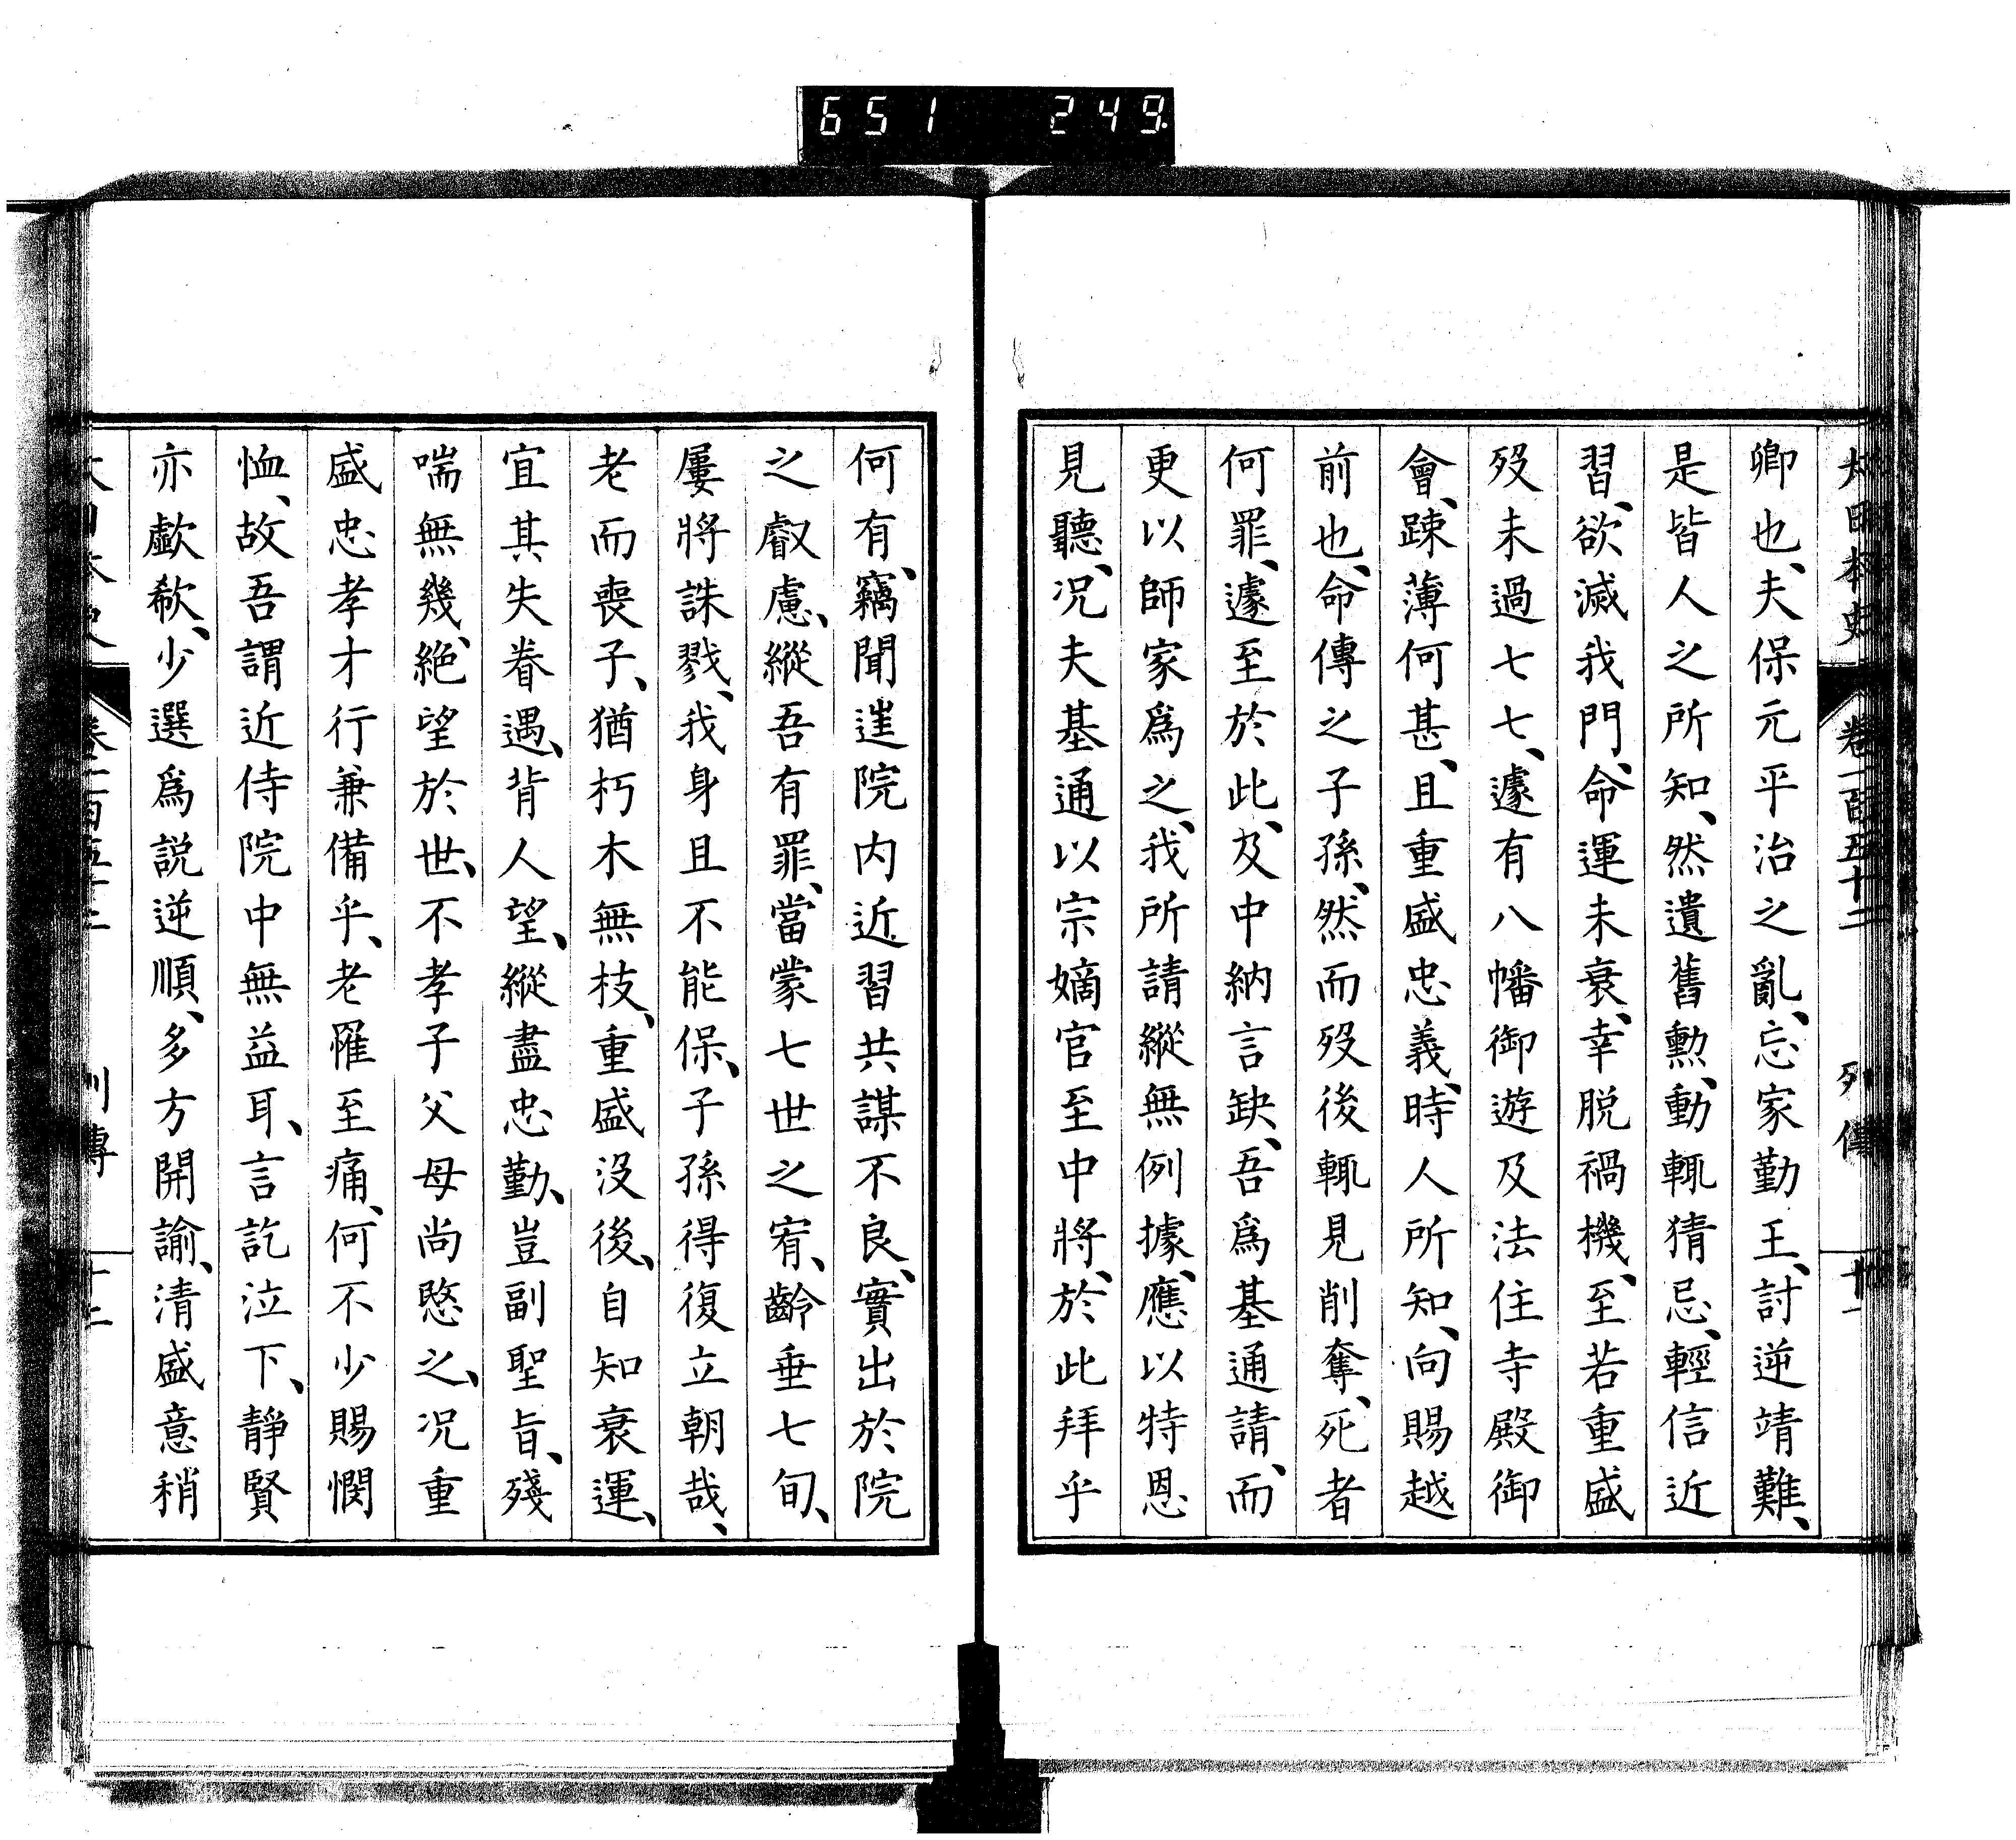 651 249
大日本史 卷一百五十二 列傳 十一
卿也、夫保元平治之亂、忘家勤王、討逆靖難、
是皆人之所知、然遺舊勲、動輒猜忌、輕信近
習、欲滅我門、命運未衰、幸脱禍機、至若重盛
歿未過七七、遽有八幡御遊及法住寺殿御
會、踈薄何甚、且重盛忠義、時人所知、向賜越
前也、命傳之子孫、然而歿後輒見削奪、死者
何罪、遽至於此、及中納言缺、吾爲基通請、而
更以師家爲之、我所請縱無例據、應以特恩
見聽、况夫基通以宗嫡官至中將、於此拜乎
何有、竊聞逬院内近習共謀不良、實出於院
之叡慮、縱吾有罪、當蒙七世之宥、齡垂七旬、
屢將誅戮、我身且不能保、子孫得復立朝哉、
老而喪子、猶朽木無枝、重盛没後、自知衰運、
宜其失眷遇、背人望、縱盡忠勤、豈副聖旨、殘
喘無幾、絶望於世、不孝子父母尚愍之、况重
盛忠孝才行兼備乎、老罹至痛、何不少賜憫
恤、故吾謂近侍院中無益耳、言訖泣下、靜賢
亦歔欷、少選爲説逆順、多方開諭、清盛意稍